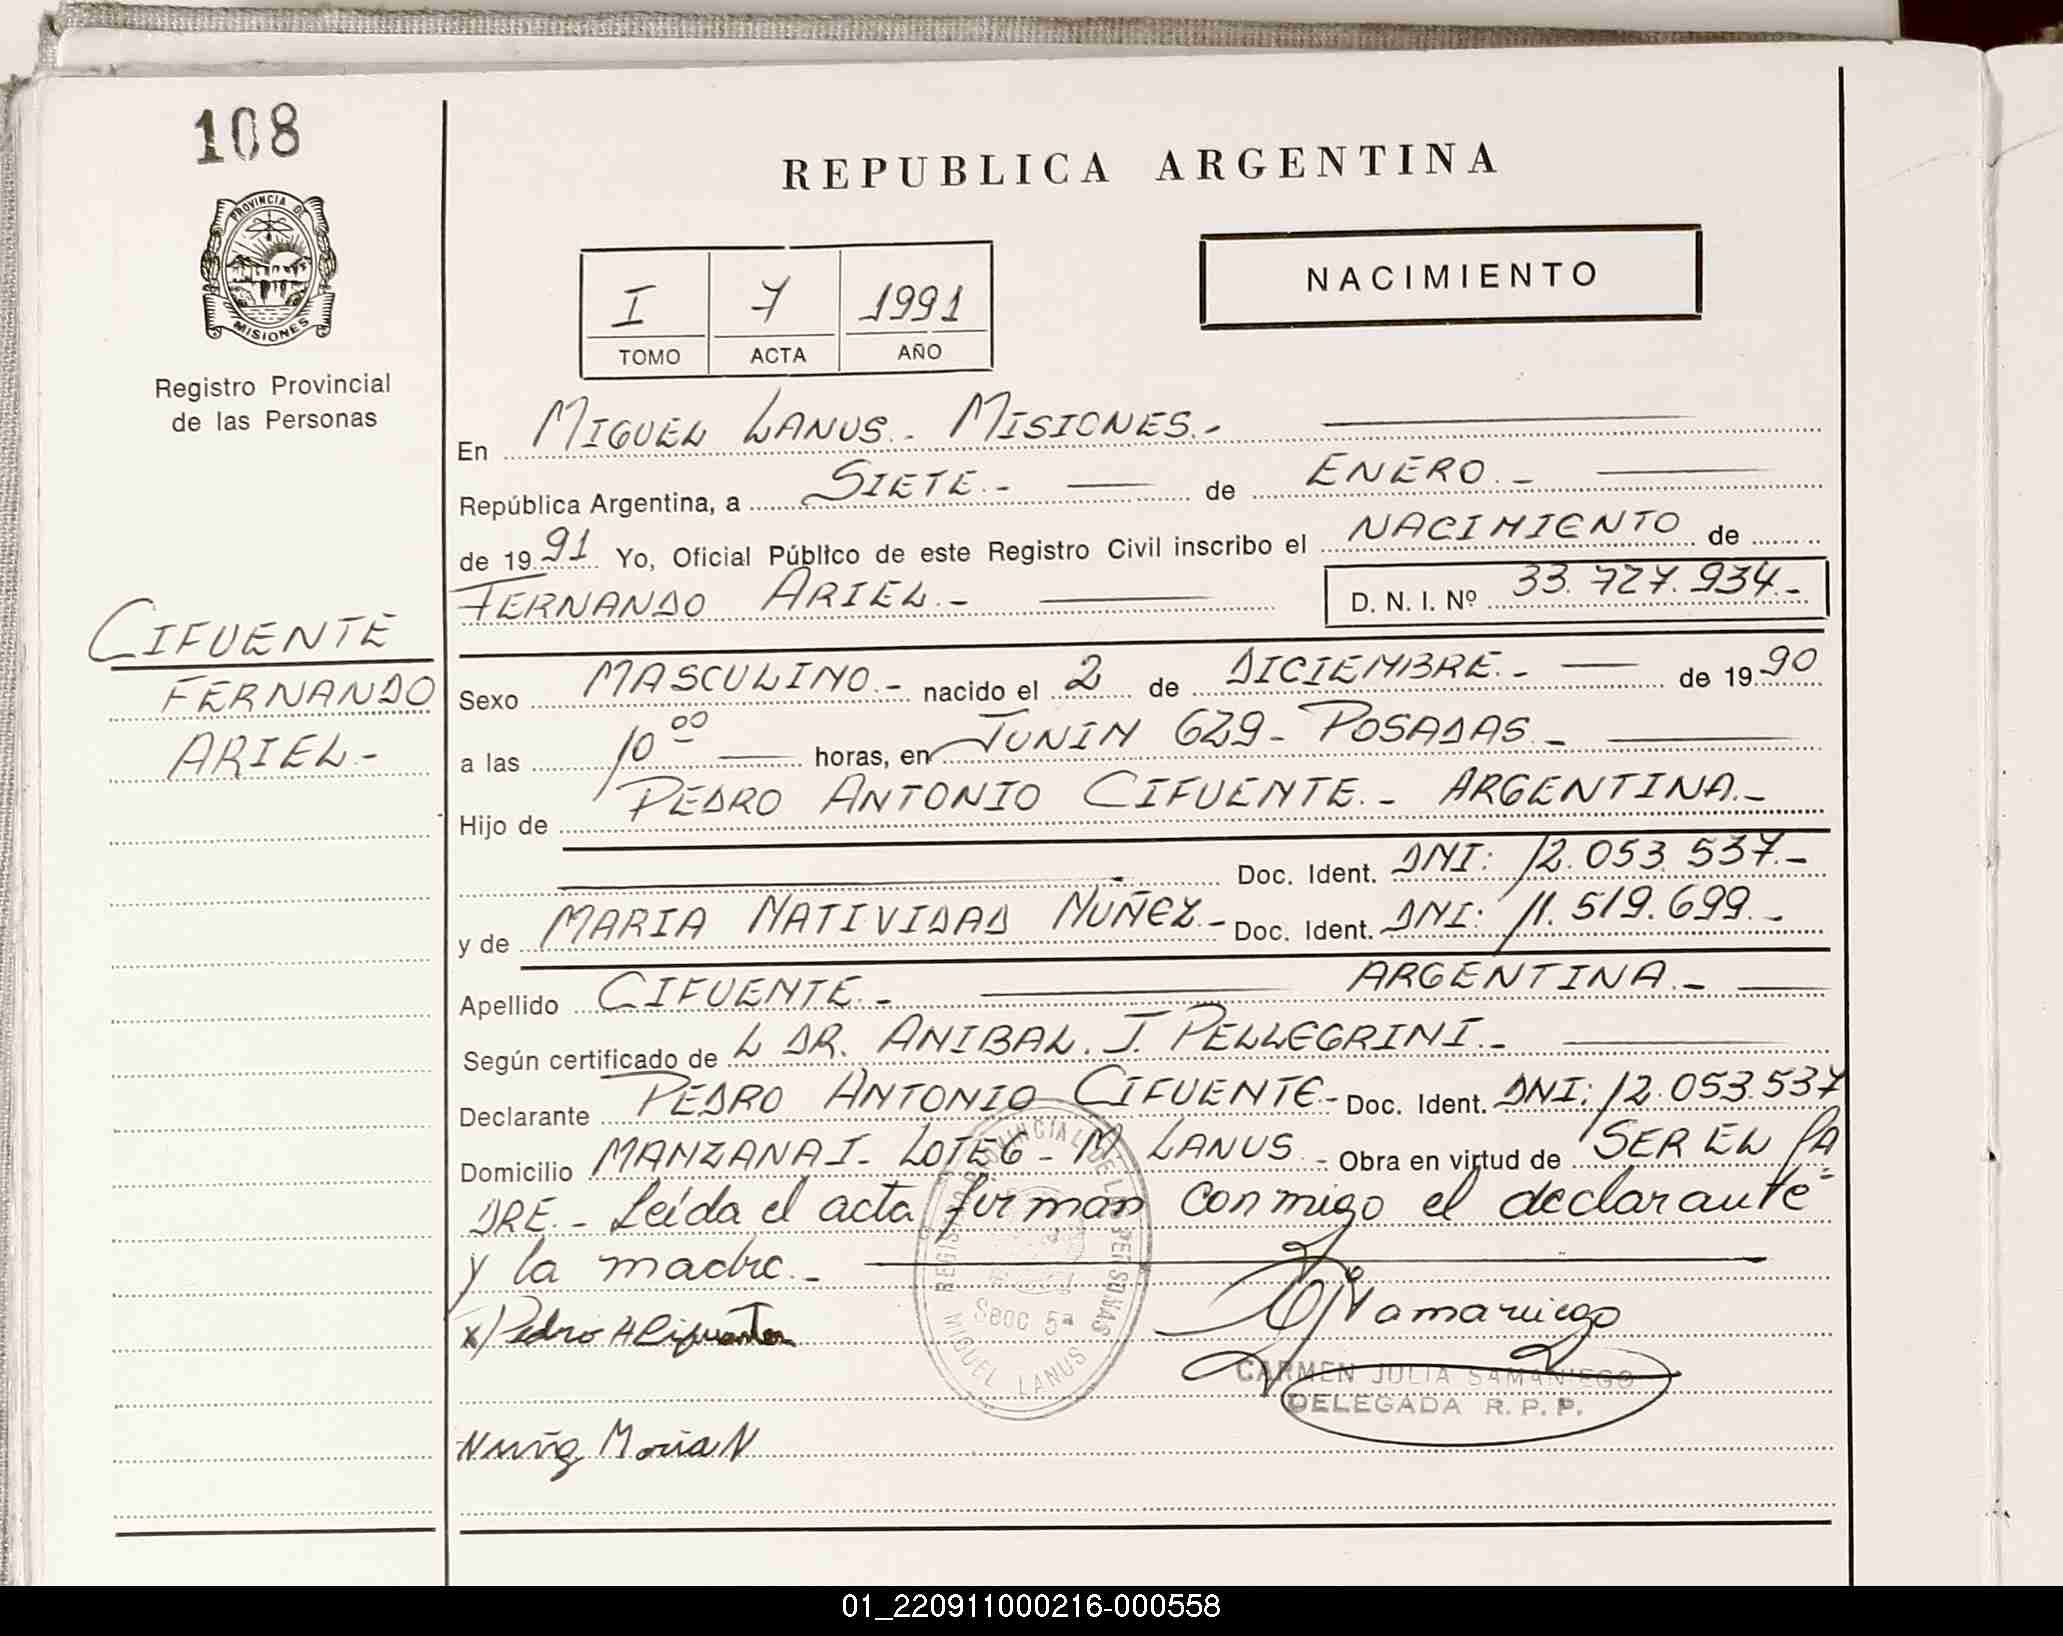 108
REPUBLICA ARGENTINA
PROVINCIA DE
MISIONES
Registro Provincial
de las Personas
I 7 1991
TOMO ACTA AÑO
NACIMIENTO
En MIGUEL LANUS.- MISIONES.-
República Argentina, a SIETE.- de ENERO.-
de 1991 Yo, Oficial Público de este Registro Civil inscribo el NACIMIENTO de
FERNANDO ARIEL.- D. N. I. Nº 33.727.934.-
CIFUENTE
FERNANDO
ARIEL.-
Sexo MASCULINO.- nacido el 2 de DICIEMBRE.- de 1990
a las 10 00 horas, en JUNIN 629- POSADAS.-
Hijo de PEDRO ANTONIO CIFUENTE.- ARGENTINA.-
Doc. Ident. DNI: 12.053.537.-
y de MARIA NATIVIDAD NUÑEZ.- Doc. Ident. DNI: 11.519.699.-
Apellido CIFUENTE.- ARGENTINA.-
Según certificado de L DR. ANIBAL. J. PELLEGRINI.-
Declarante PEDRO ANTONIO CIFUENTE- Doc. Ident. DNI: 12.053.537
Domicilio MANZANA I- LOTE 6- M LANUS.- Obra en virtud de SER EL PA
DRE.- Leída el acta firman conmigo el declarante
y la madre.-
REGISTRO PROVINCIAL DE LAS PERSONAS
Secc 5ª
MIGUEL LANUS
x) Pedro A Cifuentes
CARMEN JULIA SAMANIEGO
DELEGADA R. P. P.
Nuñez Maria N
01_220911000216-000558